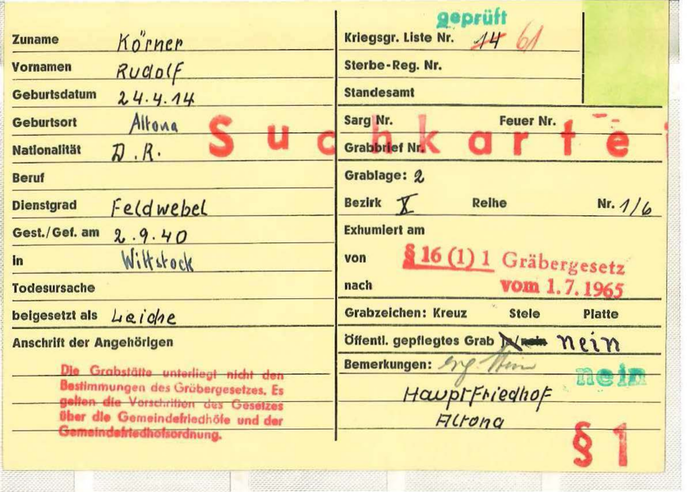 Zuname Körner
Vornamen Rudolf
Geburtsdatum 24.4.14
Geburtsort Altona
Nationalität D.R.
Beruf
Dienstgrad Feldwebel
Gest./Gef. am 2.9.40
in Wittstock
Todesursache
beigesetzt als Leiche
Anschrift der Angehörigen
Die Grabstätte unterliegt nicht den
Bestimmungen des Gräbergesetzes. Es
gelten die Vorschriften des Gesetzes
über die Gemeindefriedhöfe und der
Gemeindefriedhofsordnung.
Suchkartei
geprüft
Kriegsgr. Liste Nr. 14 61
Sterbe-Reg. Nr.
Standesamt
Sarg Nr. Feuer Nr.
Grabbrief Nr.
Grablage: 2
Bezirk X Reihe Nr. 1/6
Exhumiert am
von
nach
§ 16 (1) 1 Gräbergesetz
vom 1.7.1965
Grabzeichen: Kreuz Stele Platte
Öffentl. gepflegtes Grab ja/nein nein
Bemerkungen:
nein
Hauptfriedhof
Altona
§ 1